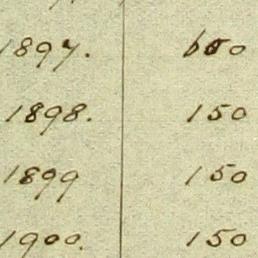 1897. 600
1898. 150
1899 150
1900. 150